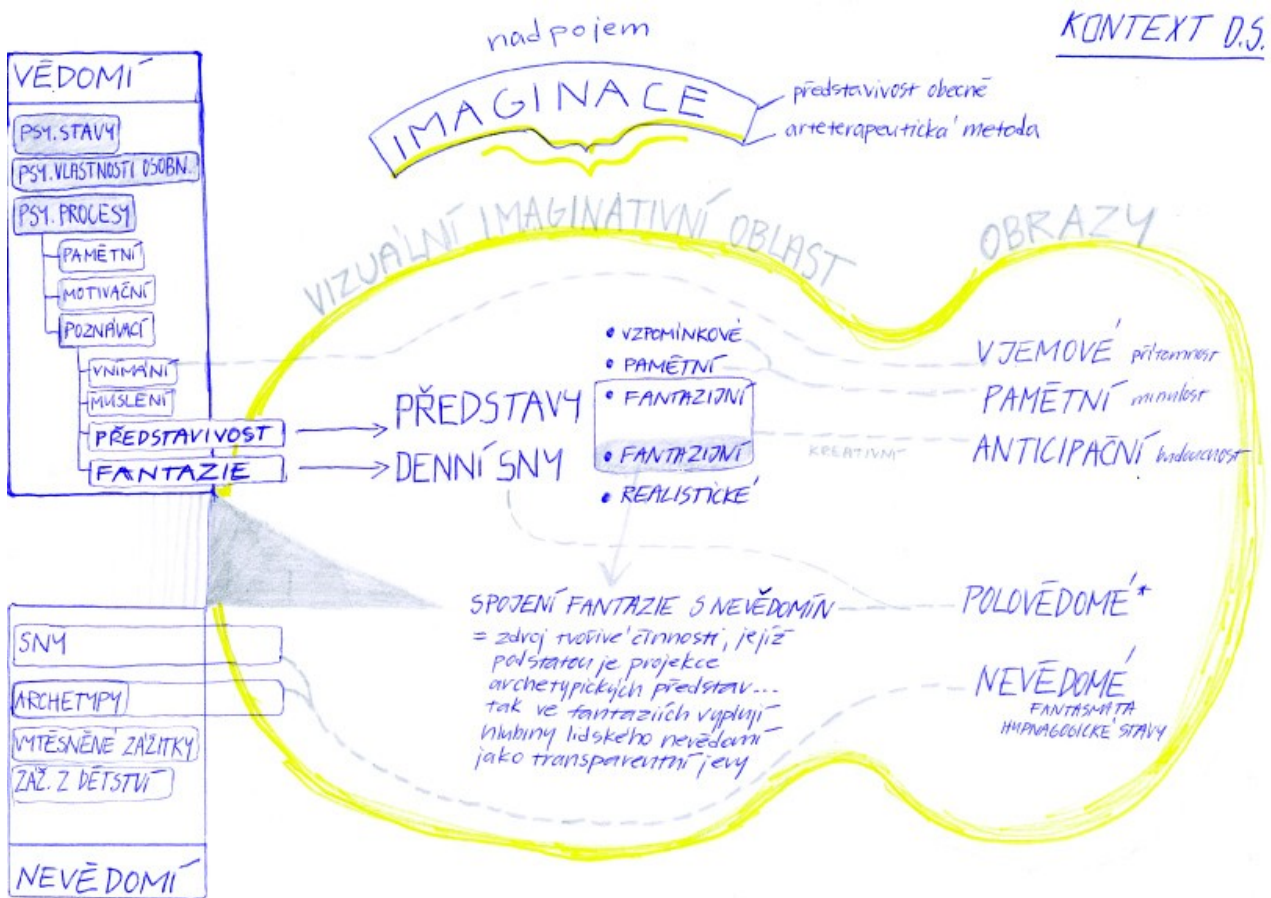 KONTEXT D.S.
nadpojem
IMAGINACE
představivost obecně
arteterapeutická metoda
VĚDOMÍ
PSY. STAVY
PSY. VLASTNOSTI OSOBN.
PSY. PROCESY
PAMĚTNÍ
MOTIVAČNÍ
POZNÁVACÍ
VNÍMÁNÍ
MYŠLENÍ
PŘEDSTAVIVOST
FANTAZIE
VIZUÁLNÍ IMAGINATIVNÍ OBLAST
OBRAZY
PŘEDSTAVY
DENNÍ SNY
• VZPOMÍNKOVÉ
• PAMĚTNÍ
• FANTAZIJNÍ
• FANTAZIJNÍ
• REALISTICKÉ
KREATIVNÍ
VJEMOVÉ přítomnost
PAMĚTNÍ minulost
ANTICIPAČNÍ budoucnost
POLOVĚDOMÉ*
NEVĚDOMÉ
FANTASMATA
HYPNAGOGICKÉ STAVY
SPOJENÍ FANTAZIE S NEVĚDOMÍN
= zdroj tvořivé činnosti, jejíž
podstatou je projekce
archetypických představ...
tak ve fantaziích vyplují
hlubiny lidského nevědomí
jako transparentní jevy
SNY
ARCHETYPY
VYTĚSNĚNÉ ZÁŽITKY
ZÁŽ. Z DĚTSTVÍ
NEVĚDOMÍ